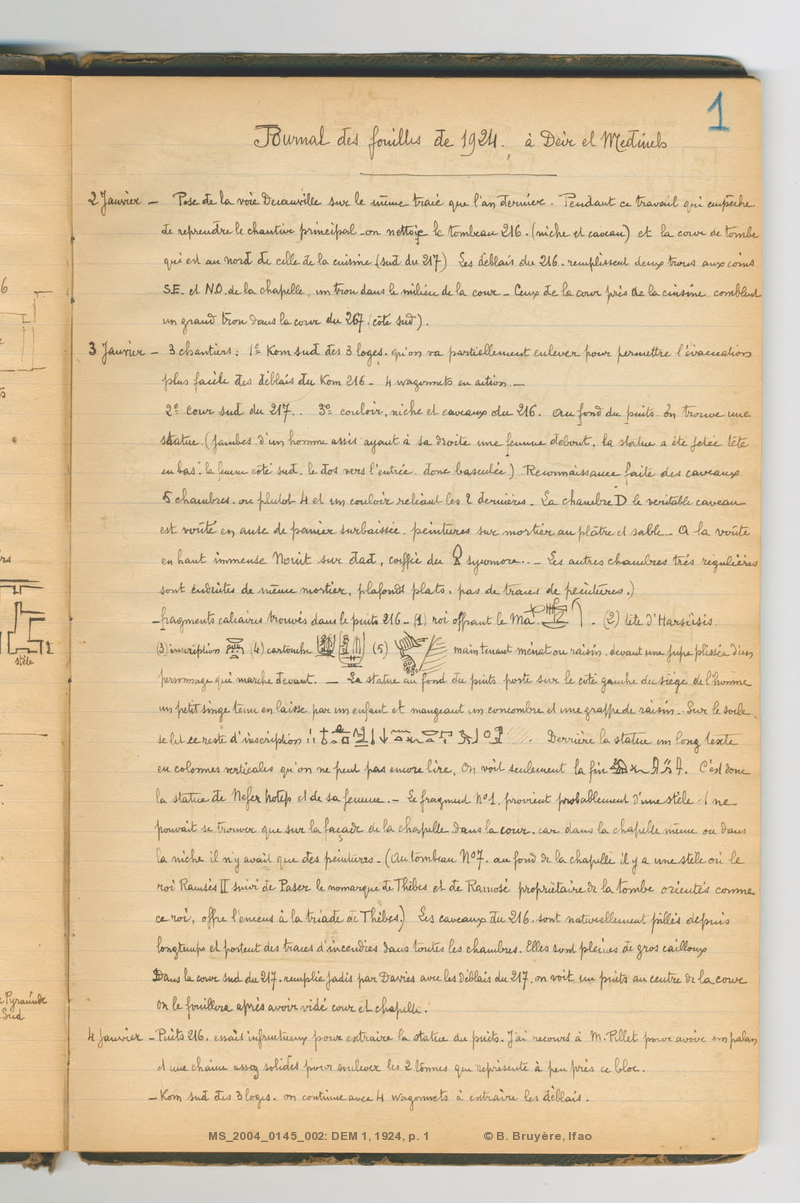 1
Journal des fouilles de 1924. à Deir el Medineh
2 Janvier — Pose de la voie Decauville sur le même tracé que l'an dernier. Pendant ce travail qui empêche
de reprendre le chantier principal on nettoie le tombeau 216. (niche et caveau) et la cour de tombe
qui est au nord de celle de la cuisine (sud du 217) Les déblais du 216. remplissent deux trous aux coins
S.E. et N.O. de la chapelle, un trou dans le milieu de la cour — Ceux de la cour près de la cuisine. comblent
un grand trou dans la cour du 267 (côté sud).
3 Janvier — 3 chantiers: 1º Kom sud des 3 loges. qu'on va partiellement enlever pour permettre l'évacuation
plus facile des déblais du Kom 216 — 4 wagonnets en action —
2º Cour sud du 217.. 3º couloir, niche et caveaux du 216. Au fond du puits on trouve une
statue. (jambes d'un homme assis ayant à sa droite une femme debout, la statue a été jetée tête
en bas. la femme côté sud. le dos vers l'entrée. donc basculée) Reconnaissance faite des caveaux
5 chambres. ou plutôt 4 et un couloir reliant les 2 dernières. La chambre D le véritable caveau
est voûté en anse de panier surbaissée. peintures sur mortier au plâtre et sable — A la voûte
en haut immense Nouit sur dad, coiffée du sycomore.. — Les autres chambres très régulières
sont enduites de même mortier, plafonds plats. pas de traces de peintures.)
— fragments calcaires trouvés dans le puits 216 — (1) roi offrant le Ma . (2) tête d'Harsiésis.
(3) inscription (4) cartouche (5) main tenant ménat ou raisin. devant une jupe plissée d'un
personnage qui marche devant. — La statue au fond du puits porte sur le côté gauche du siège de l'homme
un petit singe tenu en laisse par un enfant et mangeant un concombre et une grappe de raisin. Sur le socle
se lit ce reste d'inscription . Derrière la statue un long texte
en colonnes verticales qu'on ne peut pas encore lire. On voit seulement la fin . C'est donc
la statue de Nefer hotep et de sa femme. — Le fragment Nº1. provient probablement d'une stèle et ne
pouvait se trouver que sur la façade de la chapelle dans la cour. car dans la chapelle même ou dans
la niche il n'y avait que des peintures — (Au tombeau Nº7. au fond de la chapelle il y a une stèle où le
roi Ramsès II suivi de Paser le nomarque de Thèbes et de Ramosé propriétaire de la tombe orientés comme
ce roi, offre l'encens à la triade de Thèbes.) Les caveaux du 216. sont naturellement pillés depuis
longtemps et portent des traces d'incendies dans toutes les chambres. Elles sont pleines de gros cailloux
Dans la cour sud du 217. remplie jadis par Davies avec les déblais du 217. on voit un puits au centre de la cour
on le fouillera après avoir vidé cour et chapelle.
4 Janvier — Puits 216. essais infructueux pour extraire la statue du puits. J'ai recours à M. Pillet pour avoir son palan
et une chaîne assez solides pour soulever les 2 tonnes que représente à peu près ce bloc.
— Kom sud des 3 loges. on continue avec 4 wagonnets à extraire les déblais.
6
stèle
Pyramide
Sud
MS_2004_0145_002: DEM 1, 1924, p. 1 © B. Bruyère, Ifao